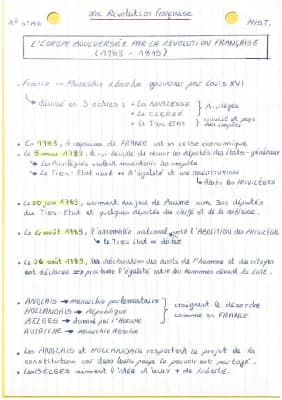 La Révolution Française
1e STMG
HIST.
L'EUROPE BOULEVERSÉE PAR LA RÉVOLUTION FRANÇAISE
(1789 - 1815)
• France → Monarchie absolue gouvernée par Louis XVI
↳ divisée en 3 ordres : • La NOBLESSE
• Le CLERGÉ } Privilégiés
• Le Tiers ETAT } et paye des impôts
• En 1789, le royaume de FRANCE est en crise économique
• Le 5 mai 1789, le roi décide de réunir les députés des États-généraux
↳ Les Privilégiés veulent les impôts
↳ Le Tiers-Etat veut + d'égalité et une constitution
↳ Abolir les PRIVILÈGES
• Le 20 juin 1789, serment du jeu de Paume avec 300 députés
du Tiers-Etat et quelques députés du clergé et de la noblesse.
• Le 4 août 1789, l'assemblée nationale vote l'ABOLITION des PRIVILÈGES
↳ le Tiers État
• Le 26 août 1789, les déclaration des droits de l'homme et du citoyen
est déclarée ⇒ proclame l'égalité entre les hommes devant la loi.
• ANGLAIS → monarchie parlementaire
HOLLANDAIS → République
BELGES → dominé par l'Autriche
AUTRICHE → monarchie Absolue
} craignent le désordre
comme en FRANCE
• Les ANGLAIS et HOLLANDAIS respectent le projet de la
constitution car dans leurs pays le pouvoir est partagé.
• Les BELGES aiment l'idée d'avoir + de liberté.